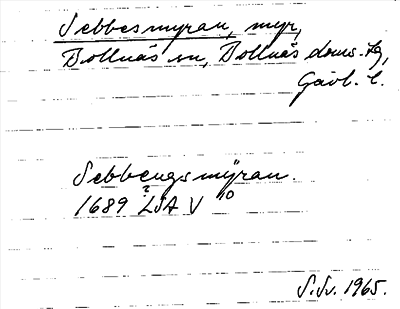 Sebbesmyran, myr,
Bollnäs sn, Bollnäs doms. tg,
Gävl. l.
Sebbengsmÿran.
1689 ? LSA V 10
S.Sv. 1965.